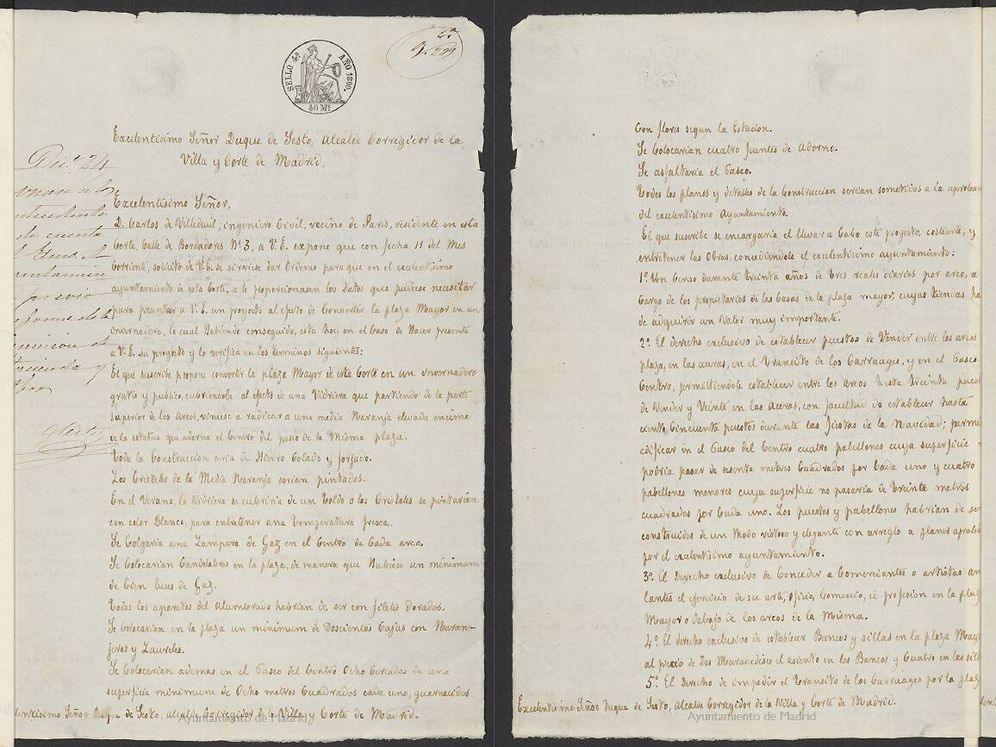 SELLO 4º AÑO 1860.
40 Mrs
Excelentisimo Señor Duque de Sesto, Alcalde Corregidor de la
Villa y Corte de Madrid.
Excelentisimo Señor,
D. Carlos de Villedeuil, ingeniero Civil, vecino de Paris, residente en esta
Corte, Calle de Bordadores Nº 3, a V. E. expone que con fecha 11 del Mes
Corriente, solicito de V. E. se sirviese dar Ordenes para que en el excelentisimo
ayuntamiento de esta Corte, se le proporcionasen los Datos que pudiese necesitar
para presentar a V. E. un proyecto al efecto de Convertir la plaza Mayor en un
invernadero, lo cual habiendo conseguido, esta hoy en el Caso de hacer presente
a V. E. Su proyecto y lo verifica en los terminos siguientes:
El que suscribe propone convertir la plaza Mayor de esta Corte en un invernadero
gratis y publico, cubriendola al efecto de una Vidriera que partiendo de la parte
superior de los Arcos, viniese a radicar a una media Naranja elevada encima
de la estatua que adorna el Centro del paseo de la Misma plaza.
Toda la Construccion seria de Hierro Colado y forjado.
Los Cristales de la Media Naranja serian pintados.
En el Verano, la Vidriera se cubriria de un Toldo o los Cristales se pintarian
con color Blanco, para entretener una Temperatura fresca.
Se Colgaria una Lampara de Gaz en el Centro de Cada arco.
Se Colocarian Candelabros en la plaza, de manera que Hubiese un minimum
de Cien luces de Gaz.
Todos los aparatos del Alumbrado habrian de ser con filetes Dorados.
Se Colocarian en la plaza un minimum de Doscientas Cajas con Naran-
jeros y Laureles.
Se Colocarian ademas en el Paseo del Centro Ocho Cercados de una
superficie minimum de Ocho metros Cuadrados cada uno, guarnecidos
Señor Duque de Sesto, alcalde Corregidor de la Villa y Corte de Madrid.
Ayuntamiento de Madrid
Con flores segun la Estacion.
Se Colocarian cuatro fuentes de Adorno.
Se asfaltaria el Paseo.
Todos los planos y detalles de la Construccion serian sometidos a la
del excelentisimo Ayuntamiento.
El que suscribe se encargaria el llevar a Cabo este proyecto, costearle, y
entretener las Obras, concediendole el excelentisimo ayuntamiento:
1º Un Censo durante Treinta años de Tres reales diarios por arco, a
Cargo de los propietarios de las Casas de la plaza mayor, cuyas tiendas
de adquirir un Valor muy importante.
2º El derecho exclusivo de establecer puestos de Vender entre los arcos
plaza, en las aceras, en el Transito de los Carruages, y en el Paseo
Centro, permitiendole establecer entre los Arcos hasta Treinta
de Vender y Veinte en las Aceras, con facultad de establecer hasta
ciento Cincuenta puestos durante las fiestas de la Navidad;
edificar en el Paseo del Centro cuatro pabellones cuya superficie
podria pasar de sesenta metros Cuadrados por Cada uno y cuatro
pabellones menores cuya superficie no pasaria de Veinte metros
cuadrados por Cada uno. Los puestos y pabellones habrian de ser
construidos de un Modo vistoso y elegante con arreglo a planos
por el excelentisimo ayuntamiento.
3º El Derecho exclusivo de Conceder a Comerciantes o artistas
el ejercicio de su arte, oficio, Comercio, ú profesion en la
Mayor o debajo de los arcos de la Misma.
4º El derecho exclusivo de establecer Bancos y sillas en la plaza
al precio de Dos Maravedises el asiento en los Bancos y Cuatro en las
5º El Derecho de impedir el Transito de los Carruages por la
Excelentisimo Señor Duque de Sesto, Alcalde Corregidor de la Villa y Corte de Madrid.
Ayuntamiento de Madrid